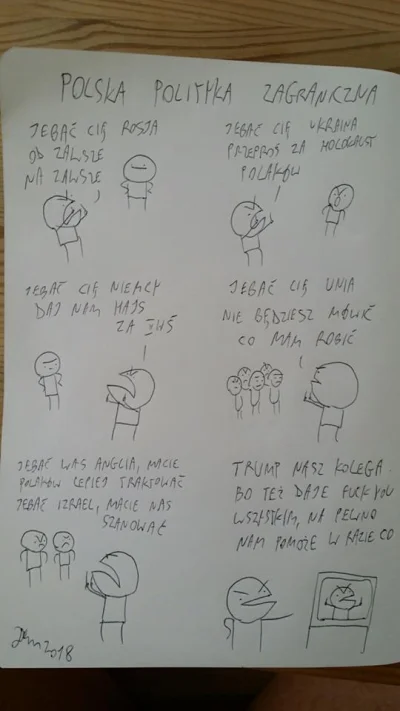 POLSKA POLITYKA ZAGRANICZNA
JEBAĆ CIĘ ROSJA
OD ZAWSZE
NA ZAWSZE
JEBAĆ CIĘ UKRAINA
PRZEPROŚ ZA HOLOCAUST
POLAKÓW
JEBAĆ CIĘ NIEMCY
DAJ NAM HAJS
ZA IIWŚ
JEBAĆ CIĘ UNIA
NIE BĘDZIESZ MÓWIĆ
CO MAM ROBIĆ
JEBAĆ WAS ANGLIA, MACIE
POLAKÓW LEPIEJ TRAKTOWAĆ
JEBAĆ IZRAEL, MACIE NAS
SZANOWAĆ
TRUMP NASZ KOLEGA
BO TEŻ DAJE FUCK YOU
WSZYSTKIM, NA PEWNO
NAM POMOŻE W RAZIE CO
2018